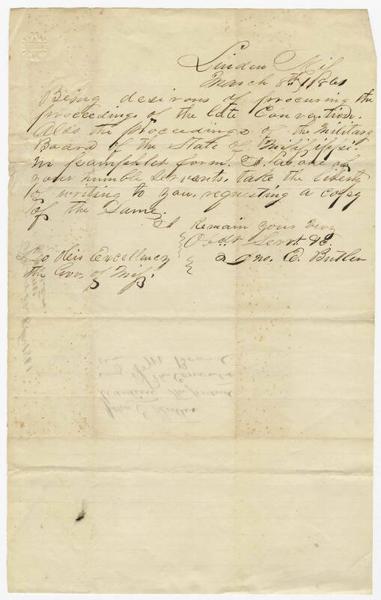 Linden Mis
March 8th 1861
Being desirous of procuring the
proceedings of the late Convention.
Also the proceedings of the Military
Board of the State of Mississippi
in pamphlet form. I as one of
your humble servants, take the liberty
of writing to you, requesting a copy
of the Same.
I Remain your very
Obdt Servt &c
Jno. C. Butler
To His Excellency
the Gov. of Miss.